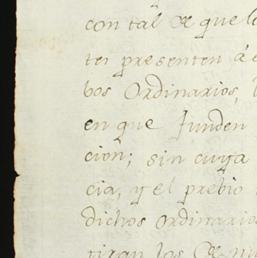 con tal de que l
tes presenten á
bos Ordinarios,
en que funden
cion; sin cuya
cia, y el prebio
dichos ordinario
tiran los de